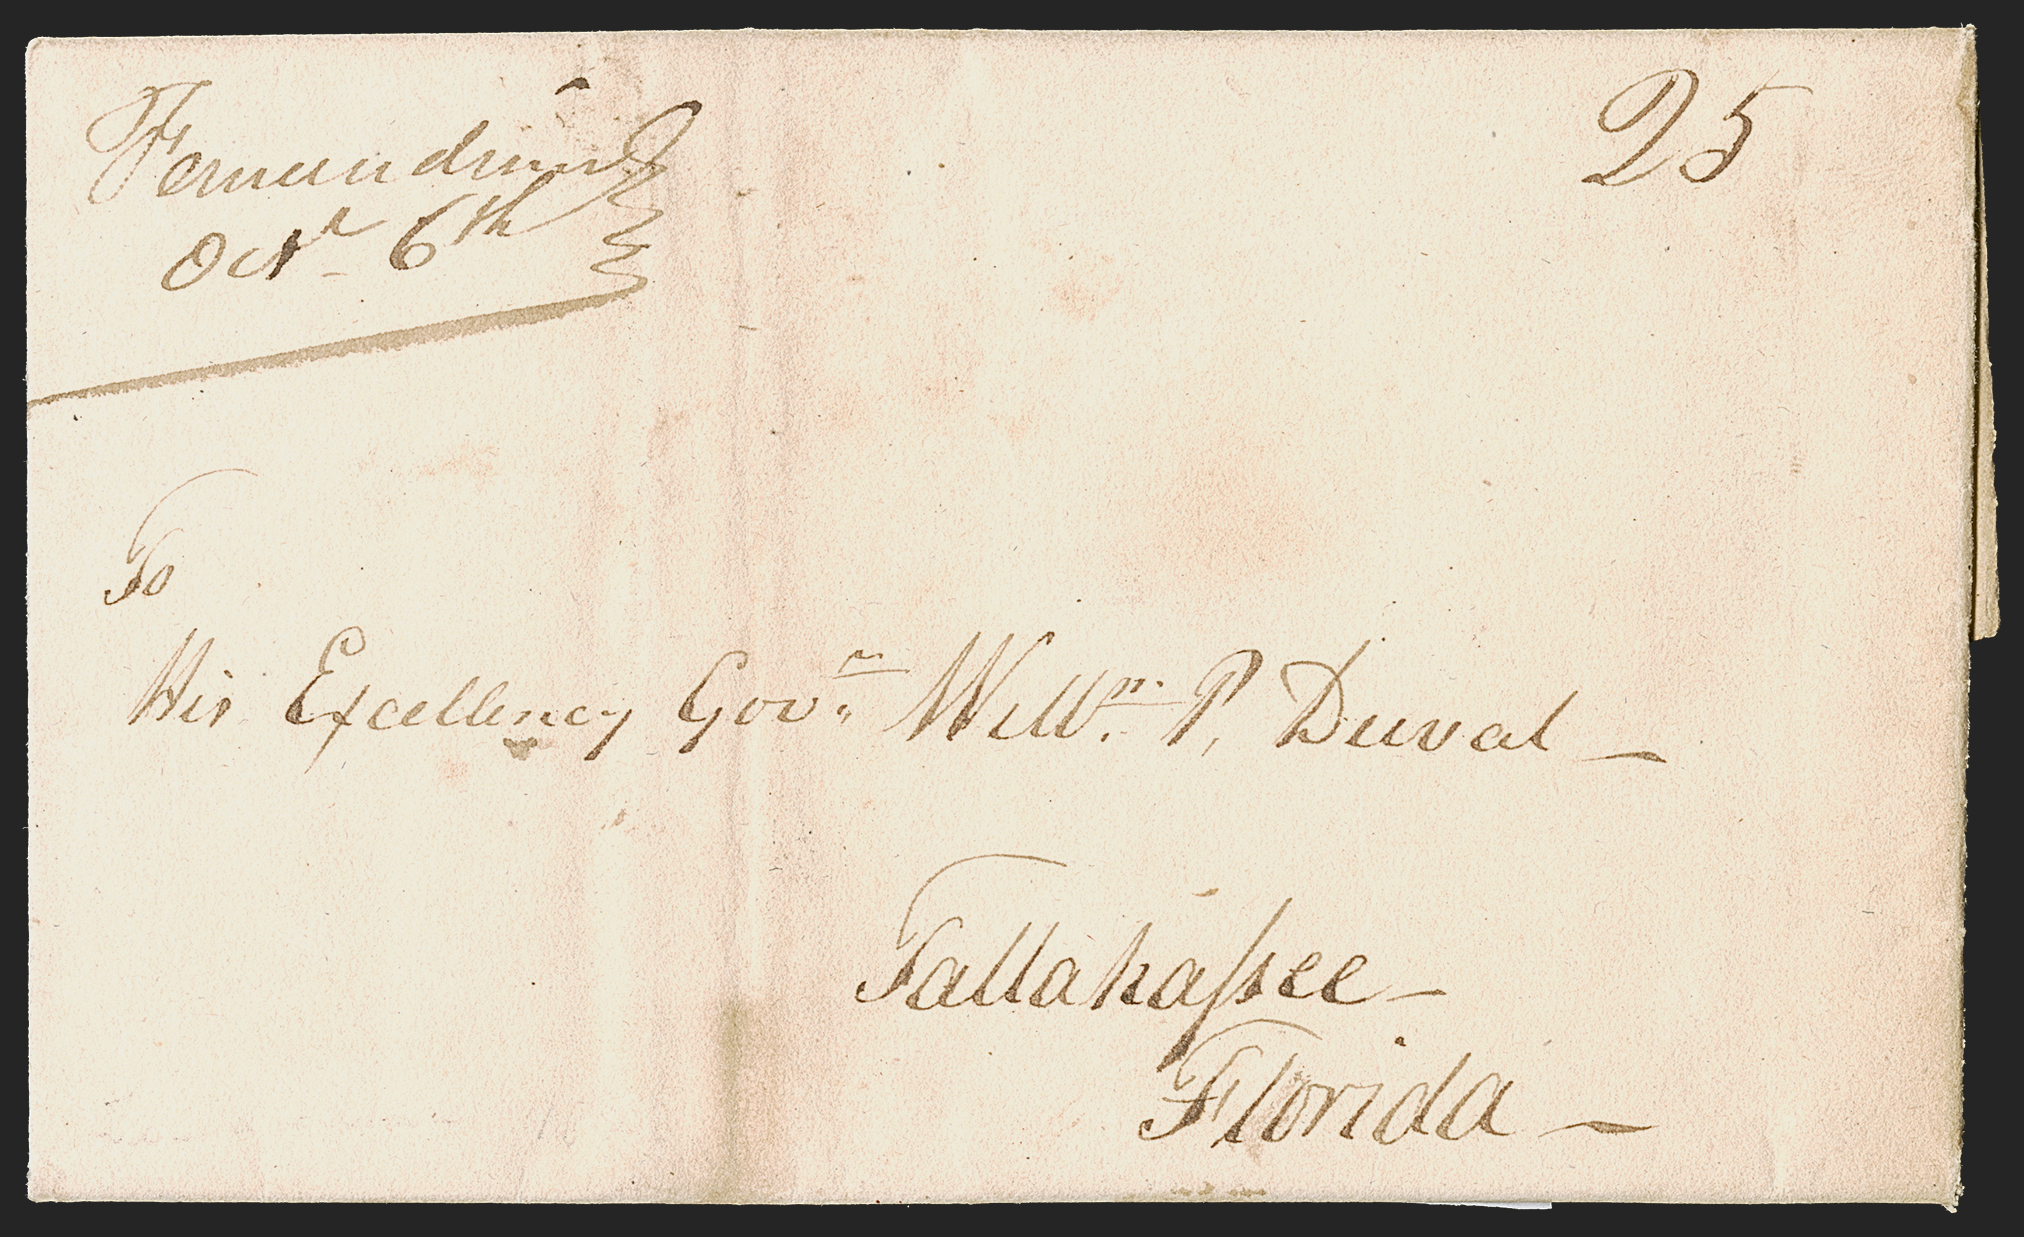 Fernandina
25
Octr 6th
To
His Excellency Govr. Willm. P. Duval —
Tallahaſsee —
Florida —